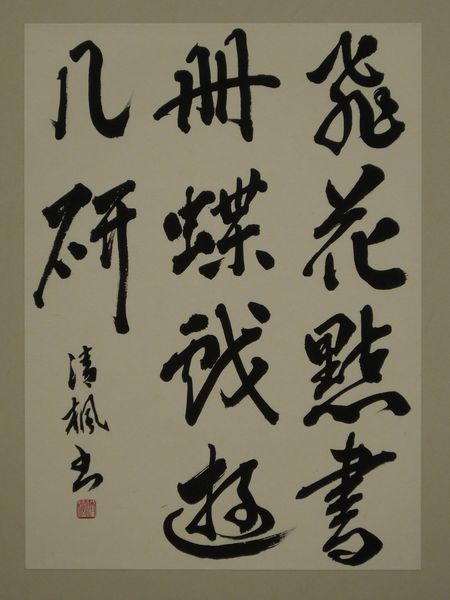 飛花點書
冊蝶戲遊
几研
清楓書